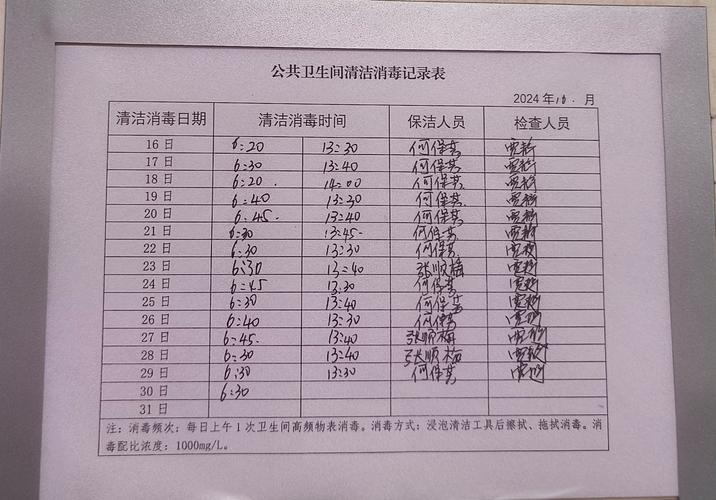 公共卫生间清洁消毒记录表
2024 年10. 月
清洁消毒日期 清洁消毒时间 保洁人员 检查人员
16 日 6:20 13:30 何保芬
17 日 6:30 13:40 何保芬
18 日 6:20. 14:00 何保芬
19 日 6:40 13:30 何保芬
20 日 6:45. 13:40 何保芬
21 日 6:30 13:45- 何保芬
22 日 6:30 13:30 何保芬
23 日 6:30 13:40 张顺梅
24 日 6:45 13:30 何保芬
25 日 6:30 13:40 何保芬
26 日 6:40 13:30 何保芬
27 日 6:45. 13:40 张顺梅
28 日 6:30 13:40 张顺梅
29 日 6:30 13:30 何保芬
30 日 6:30
31 日
注：消毒频次：每日上午 1 次卫生间高频物表消毒。消毒方式：浸泡清洁工具后擦拭、拖拭消毒。消
毒配比浓度：1000mg/L。